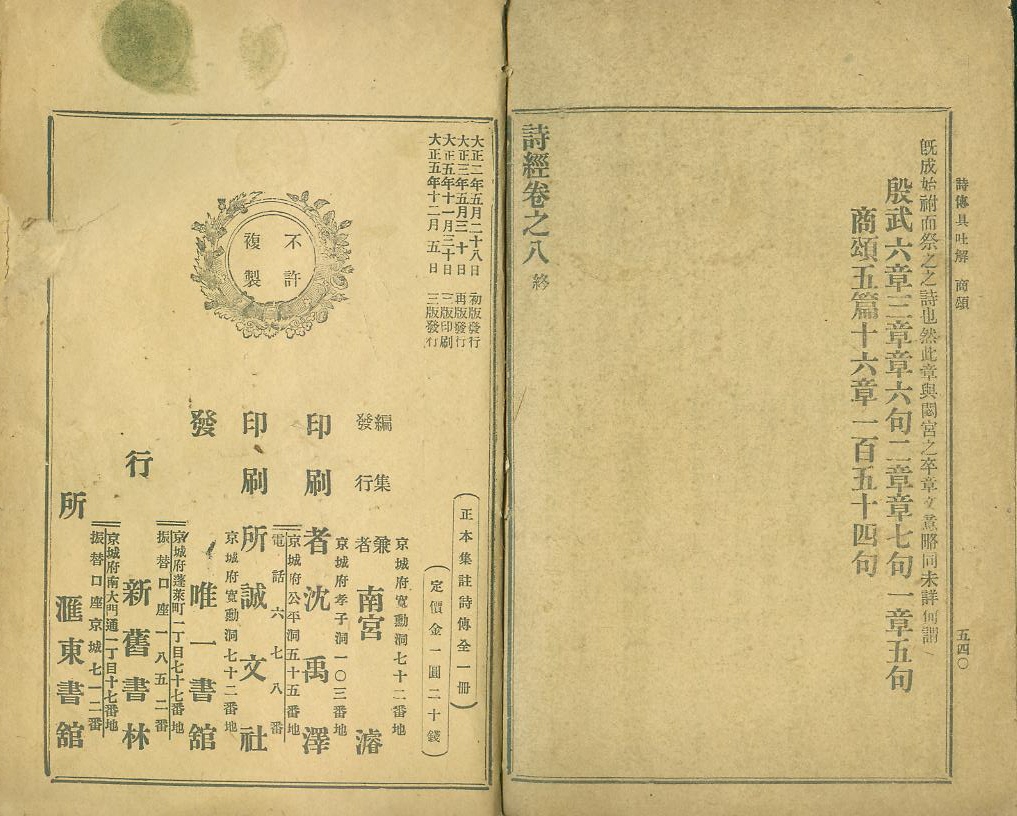 詩傳具吐解 商頌
五四〇
旣成始祔而祭之之詩也然此章與閟宮之卒章文意略同未詳何謂
殷武六章三章章六句二章章七句一章五句
商頌五篇十六章一百五十四句
詩經卷之八 終
大正二年五月二十八日 初版發行
大正三年五月三十日 再版發行
大正五年十一月三十日 三版印刷
大正五年十二月五日 三版發行
不許
複製
(正本集註詩傳全一冊)
(定價金一圓二十錢)
京城府寬勳洞七十二番地
編集兼
發行者 南宮濬
京城府孝子洞一〇三番地
印刷者 沈禹澤
京城府公平洞五十五番地
電話六七八番
印刷所 誠文社
京城府寬勳洞七十二番地
發行所
唯一書舘
京城府蓬萊町一丁目七十七番地
振替口座一八五二番
新舊書林
京城府南大門通一丁目十七番地
振替口座京城七一二番
滙東書舘